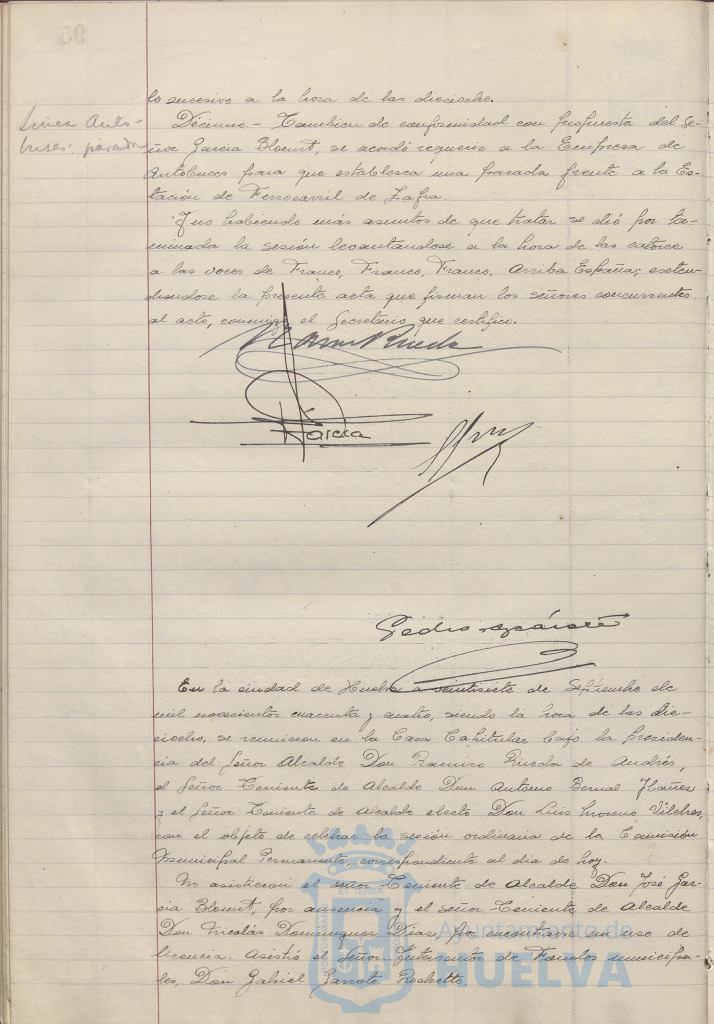 lo sucesivo a la hora de las dieciocho.
Linea Auto-
buses: parada
Décimo.- Tambien de conformidad con propuesta del Se-
ñor Garcia Blount, se acordó requerir a la Empresa de
Autobuses para que establezca una parada frente a la Es-
tación de Ferrocarril de Zafra.
Y no habiendo más asuntos de que tratar se dió por ter-
minada la sesión levantandose a la hora de las catorce
a las voces de Franco, Franco, Franco, Arriba España; exten-
diendose la presente acta que firman los señores concurrentes
al acto, conmigo el Secretario que certifico.
Rueda
Garcia
Pedro
En la ciudad de Huelva a veintisiete de Septiembre de
mil novecientos cuarenta y cuatro, siendo la hora de las die-
ciocho, se reunieron en la Casa Capitular bajo la presiden-
cia del Señor Alcalde Don Ramiro Rueda de Andrés,
el Señor Teniente de Alcalde Don Antonio Bernal Ibañez
y el Señor Teniente de Alcalde electo Don Luis Moreno Vilches,
con el objeto de celebrar la sesión ordinaria de la Comisión
Municipal Permanente, correspondiente al dia de hoy.
No asistieron el señor Teniente de Alcalde Don José Gar-
cia Blount, por ausencia y el señor Teniente de Alcalde
Don Nicolás Dominguez Dias, por encontrarse en uso de
licencia. Asistió el Señor Interventor de Fondos municipa-
les, Don Gabriel Garrote Rochetto
Ayuntamiento de
HUELVA